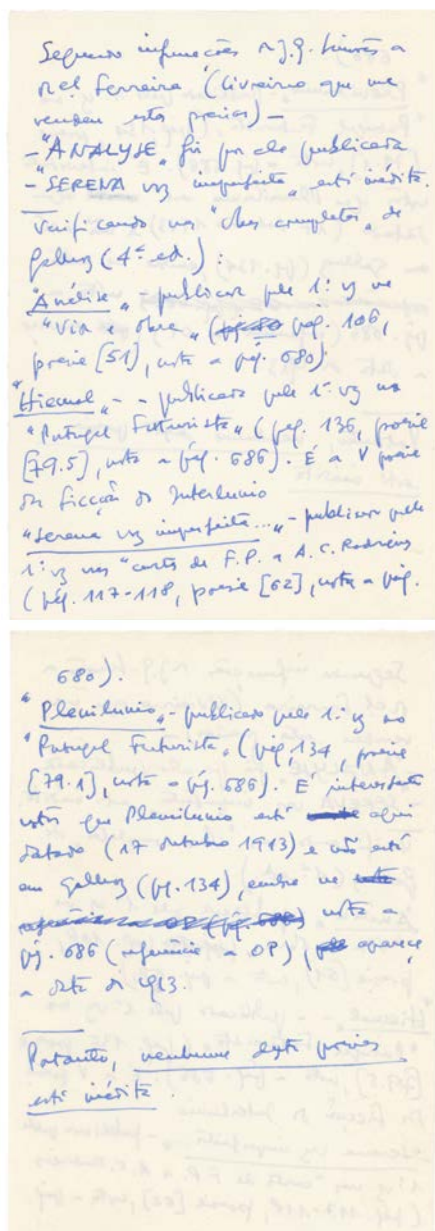 Segundo informações J.G. Simões a
Rel Ferreira (livreiro que me
vendeu estas poesias) —
- "ANALYSE" foi por ele publicada
- "SERENA voz imperfeita" está inédita.
Verificando nas "obras completas" de
Galhoz (4ª ed.):
"Análise" - publicou pela 1ª vez na
"Vida e obra" (pág. 106,
poesia [51], nota a pág. 680)
"Hiemal" - - publicada pela 1ª vez no
"Portugal Futurista" (pág. 136, poesia
[79.5], nota a pág. 686). É a V poesia
da Ficção do Interlúnio
"Serena voz imperfeita..." - publicou pela
1ª vez nas "cartas de F.P. a A.C. Rodrigues
(pág. 117-118, poesia [62], nota a pág.
680).
"Plenilunio" - publicado pela 1ª vez no
"Portugal Futurista" (pág. 134, poesia
[79.1], nota a pág. 686). É interessante
notar que Plenilunio está aqui
datado (17 outubro 1913) e não está
em Galhoz (pg. 134), embora na
nota a
pág. 686 (referência a OP), aparece
a data de 1913.
Portanto, nenhuma destas poesias
está inédita.